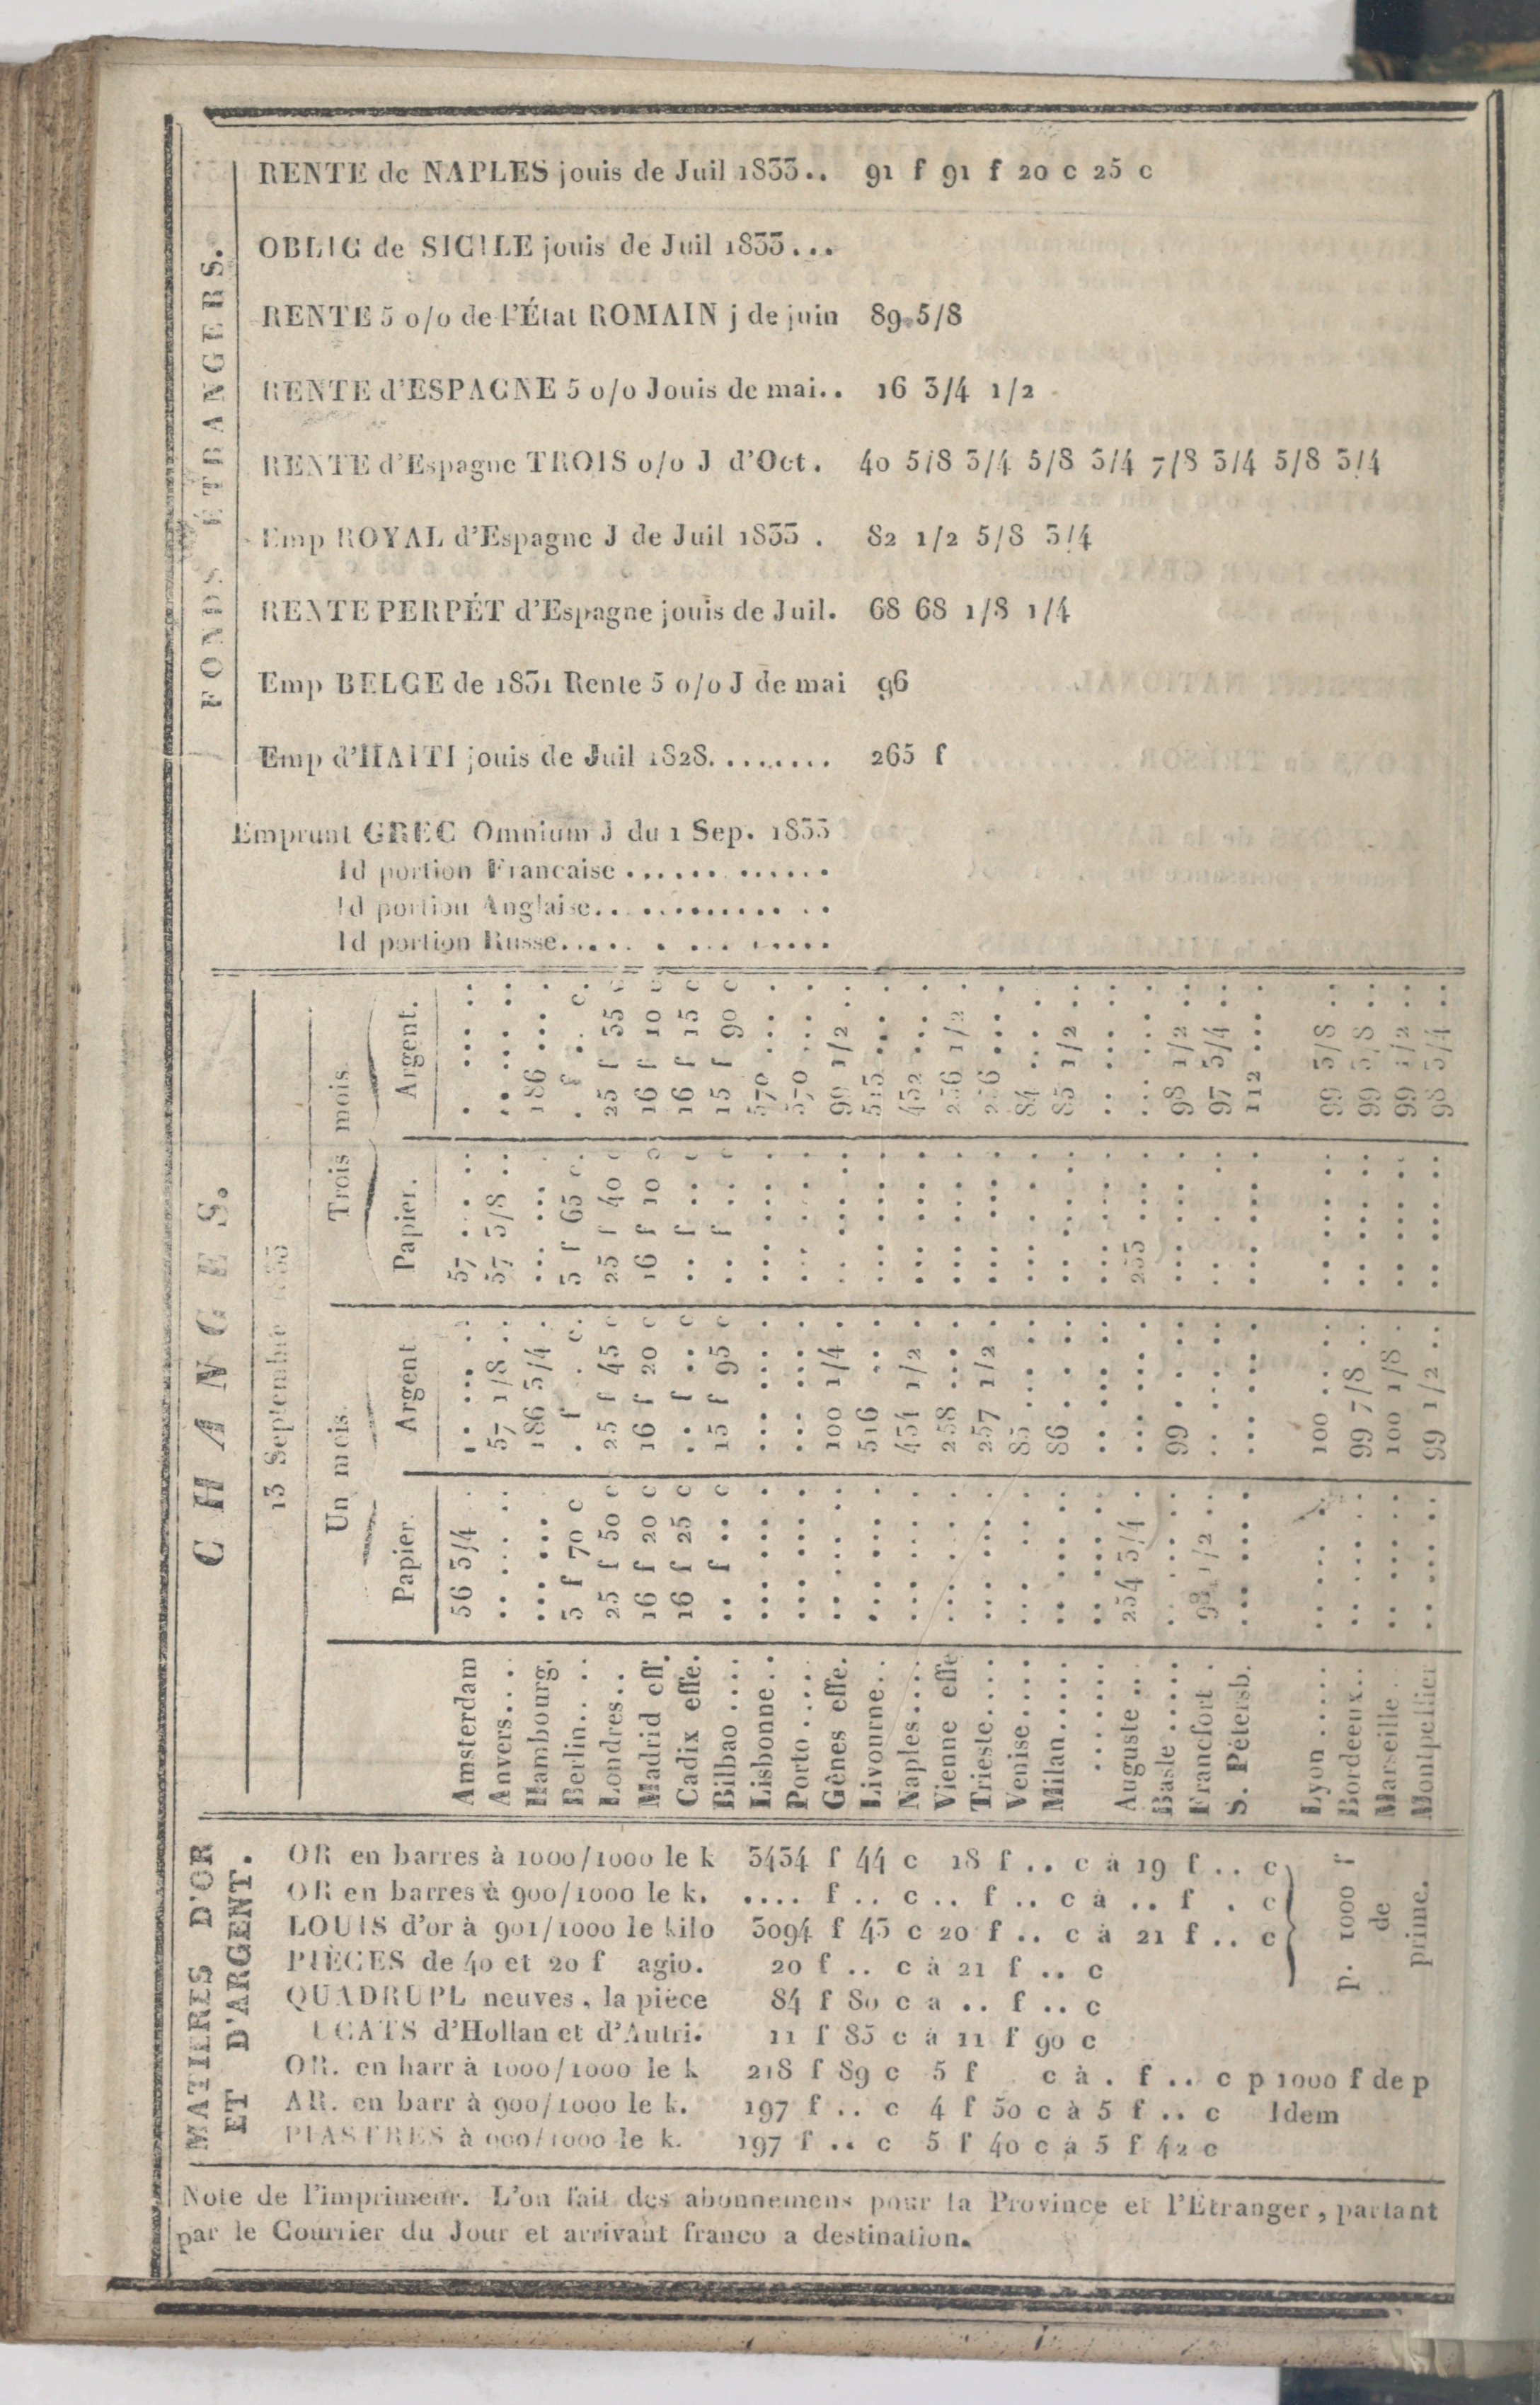 FONDS ÉTRANGERS.
RENTE de NAPLES jouis de Juil 1833.. 91 f 91 f 20 c 25 c
OBLIG de SICILE jouis de Juil 1833...
RENTE 5 o/o de l'État ROMAIN j de juin 89 5/8
RENTE d'ESPAGNE 5 o/o Jouis de mai.. 16 3/4 1/2
RENTE d'Espagne TROIS o/o J d'Oct. 40 5/8 3/4 5/8 3/4 7/8 3/4 5/8 3/4
Emp ROYAL d'Espagne J de Juil 1833 . 82 1/2 5/8 3/4
RENTE PERPÉT d'Espagne jouis de Juil. 68 68 1/8 1/4
Emp BELGE de 1831 Rente 5 o/o J de mai 96
Emp d'HAITI jouis de Juil 1828......... 265 f
Emprunt GREC Omnium J du 1 Sep. 1833
Id portion Francaise .............
Id portion Anglaise..............
Id portion Russe..............
CHANGES.
13 Septembre 1833
Un mois. Trois mois.
Papier. Argent Papier. Argent.
Amsterdam 56 3/4 . .. ... .. 57 . ... .. . .... ..
Anvers.... .. ... .. 57 1/8 .. 57 3/8 .. .. ... ..
Hambourg. ... ... 186 3/4 . ... ... . 186 ... .
Berlin.... 3 f 70 c . f . . c. 3 f 65 c. . f . . c.
Londres... 25 f 50 c 25 f 45 c 25 f 40 c 25 f 35 c
Madrid eff. 16 f 20 c 16 f 20 c 16 f 10 c 16 f 10 c
Cadix effe. 16 f 25 c .. f .. c .. f .. c 16 f 15 c
Bilbao .... .. f .. c 15 f 95 c .. f .. c 15 f 90 c
Lisbonne... ... ... . ... ... . ... ... . 570 ... .
Porto..... ... ... . ... ... . ... ... . 570 ... .
Gênes effe. .. ... .. 100 1/4 . .. ... .. 99 1/2 ..
Livourne... ... ... . 516 ... . ... ... . 515 ... .
Naples.... ... ... . 434 1/2 . ... ... . 432 ... .
Vienne effe ... ... . 258 ... . ... ... . 256 1/2 .
Trieste.... ... ... . 257 1/2 . ... ... . 256 ... .
Venise.... ... ... . 85 ... .. ... ... . 84 ... ..
Milan...... .. ... .. 86 . ... . .. ... .. 85 1/2 ..
....... .. ... .. .. ... .. .. ... .. .. ... ..
Auguste ... 254 3/4 . ... ... . 253 ... . ... ... .
Basle ..... .. ... .. 99 . ... . ... ... . 98 1/2 ..
Francfort . 1/2 .. .. ... .. .. ... . 97 3/4 ..
S. Pétersb. ... ... . ... ... . ... ... . 112 ... .
Lyon ..... .. ... .. 100 ... .. .. ... .. 99 5/8 ..
Bordeeux... .. ... .. 99 7/8 .. .. ... .. 99 5/8 ..
Marseille .. .. ... .. 100 1/8 . .. ... .. 99 1/2 ..
Montpellier .. ... .. 99 1/2 .. .. ... .. 98 3/4 ..
MATIERES D'OR
ET D'ARGENT.
OR en barres à 1000/1000 le k 3434 f 44 c 18 f .. c à 19 f .. c
OR en barres à 900/1000 le k. .... f .. c .. f .. c à .. f . c
LOUIS d'or à 901/1000 le kilo 3094 f 43 c 20 f .. c à 21 f .. c
PIÈCES de 40 et 20 f agio. 20 f .. c à 21 f .. c
QUADRUPL neuves, la pièce 84 f 80 c a .. f .. c
UCATS d'Hollan et d'Autri. 11 f 85 c à 11 f 90 c
p. 1000 f
de
prime.
OR. en barr à 1000/1000 le k 218 f 89 c 5 f c à . f .. c p 1000 f de p
AR. en barr à 900/1000 le k. 197 f .. c 4 f 50 c à 5 f .. c Idem
PIASTRES à 900/1000 le k. 197 f .. c 5 f 40 c à 5 f 42 c
Note de l'imprimeur. L'on fait des abonnemens pour la Province et l'Étranger, partant
par le Courrier du Jour et arrivant franco a destination.